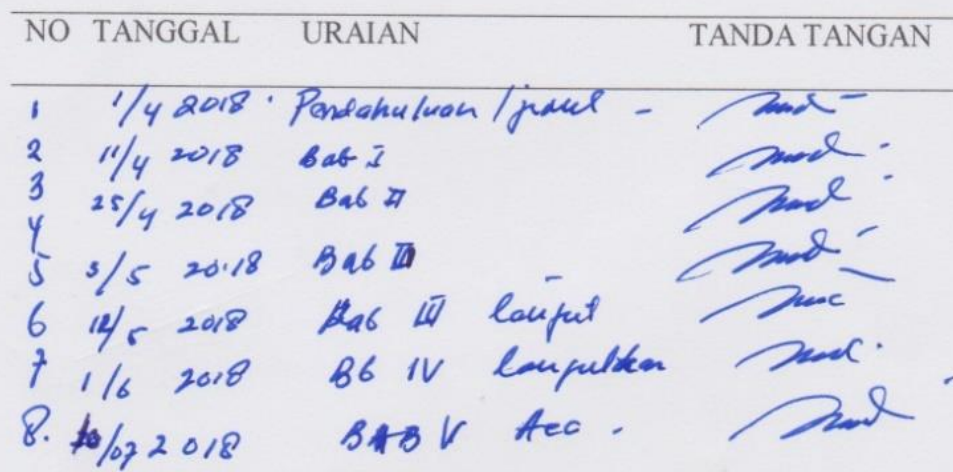 NO TANGGAL URAIAN TANDA TANGAN
1 1/4 2018 Pendahuluan /
2 11/4 2018 Bab I
3 25/4 2018 Bab II
4
5 3/5 2018 Bab III
6 /5 2018 Bab III lanjut
7 1/6 2018 Bb IV lanjutkan
8. /07 2018 BAB V Acc.